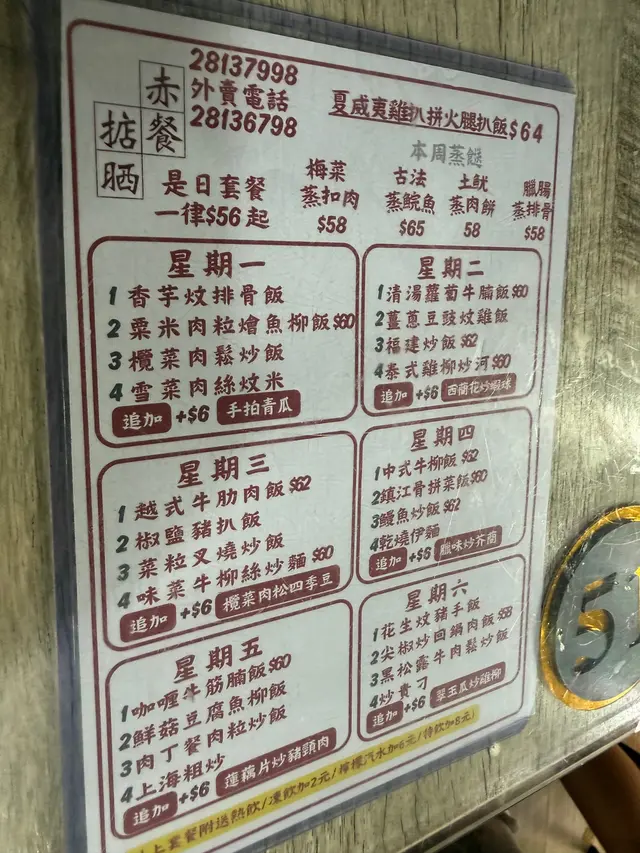 赤餐
掂晒
28137998
外賣電話
28136798
夏威夷雞扒拼火腿扒飯$64
是日套餐
一律$56起
本周蒸餸
梅菜
蒸扣肉
$58
古法
蒸鯇魚
$65
土魷
蒸肉餅
58
臘腸
蒸排骨
$58
星期一
1香芋炆排骨飯
2粟米肉粒燴魚柳飯$60
3欖菜肉鬆炒飯
4雪菜肉絲炆米
追加 +$6 手拍青瓜
星期二
1清湯蘿蔔牛腩飯$60
2薑蔥豆豉炆雞飯
3福建炒飯$62
4泰式雞柳炒河$60
追加 +$6 西蘭花炒蝦球
星期三
1越式牛肋肉飯$62
2椒鹽豬扒飯
3菜粒叉燒炒飯
4味菜牛柳絲炒麵$60
追加 +$6 欖菜肉松四季豆
星期四
1中式牛柳飯$62
2鎮江骨拼菜飯$60
3鰻魚炒飯$62
4乾燒伊麵
追加 +$6 臘味炒芥蘭
星期五
1咖喱牛筋腩飯$60
2鮮菇豆腐魚柳飯
3肉丁餐肉粒炒飯
4上海粗炒
追加 +$6 蓮藕片炒豬頸肉
星期六
1花生炆豬手飯
2尖椒炒回鍋肉飯$58
3黑松露牛肉鬆炒飯
4炒貴刁
追加 +$6 翠玉瓜炒雞柳
上套餐附送熱飲/凍飲加2元/檸檬汽水加6元/特飲加8元)
5